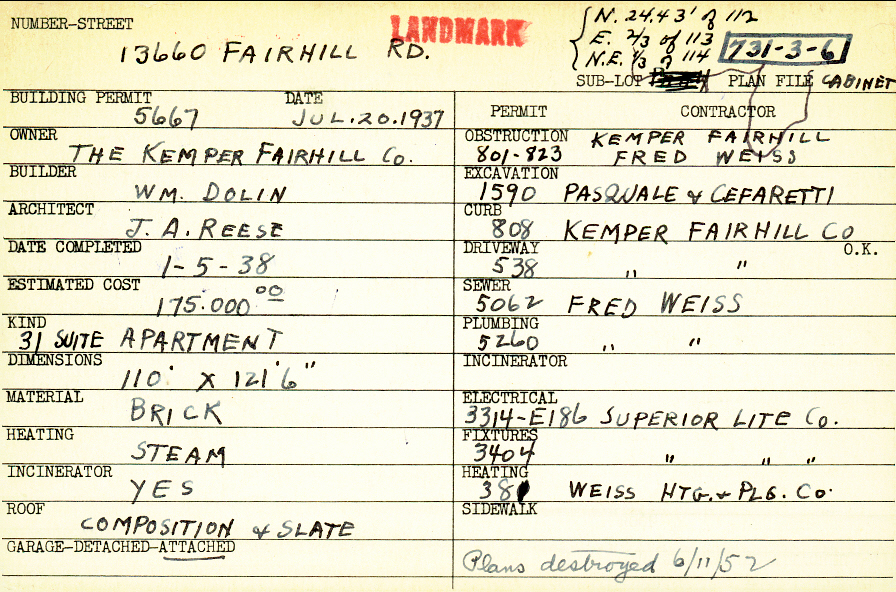 NUMBER-STREET
LANDMARK
13660 FAIRHILL RD.
N. 24.43' of 112
E. 2/3 of 113
N.E. 1/3 of 114
731-3-6
SUB-LOT PLAN FILE CABINET
BUILDING PERMIT DATE
5667 JUL.20.1937
OWNER
THE KEMPER FAIRHILL Co.
BUILDER
WM. DOLIN
ARCHITECT
J. A. REESE
DATE COMPLETED
1-5-38
ESTIMATED COST
175.000.00
KIND
31 SUITE APARTMENT
DIMENSIONS
110' X 121'6"
MATERIAL
BRICK
HEATING
STEAM
INCINERATOR
YES
ROOF
COMPOSITION & SLATE
GARAGE-DETACHED-ATTACHED
PERMIT CONTRACTOR
OBSTRUCTION KEMPER FAIRHILL
801-823 FRED WEISS
EXCAVATION
1590 PASQUALE & CEFARETTI
CURB
808 KEMPER FAIRHILL CO
DRIVEWAY O.K.
538 " "
SEWER
5062 FRED WEISS
PLUMBING
5260 " "
INCINERATOR
ELECTRICAL
3314-E186 SUPERIOR LITE Co.
FIXTURES
3404 " " "
HEATING
381 WEISS HTG. & PLG. Co.
SIDEWALK
Plans destroyed 6/11/52